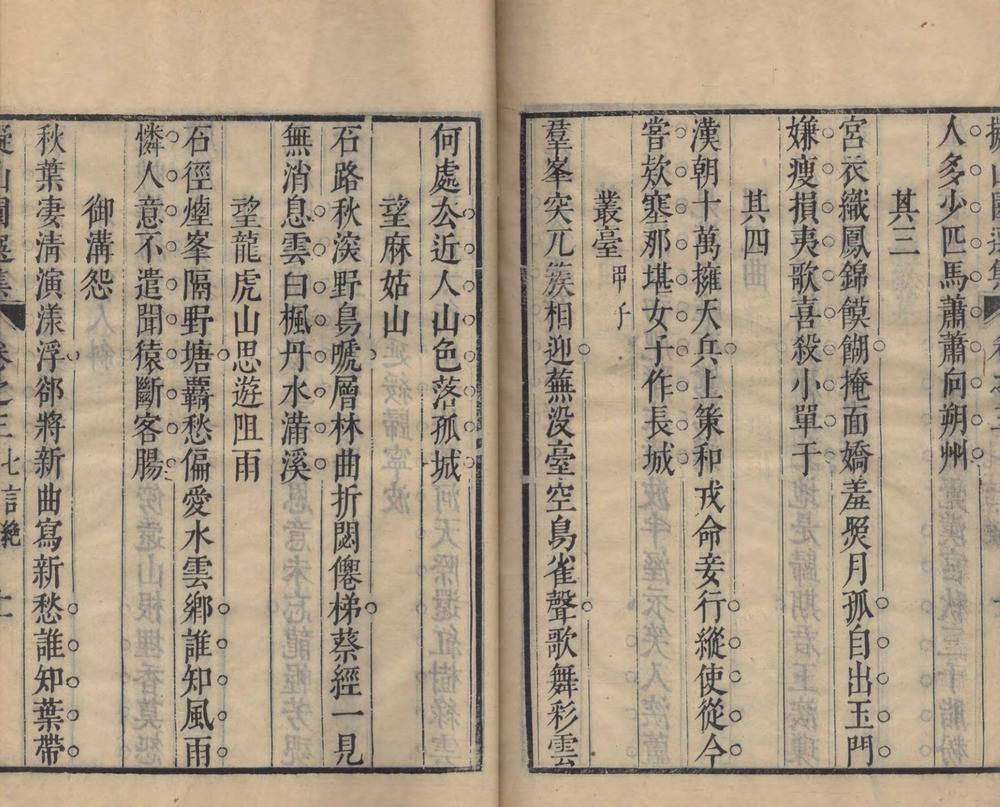 人多少匹馬蕭蕭向朔州
其三
宮衣織鳳錦饃餬掩面嬌羞煚月孤自出玉門
嫌瘦損夷歌喜殺小單于
其四
漢朝十萬擁天兵上策和戎命妾行縱使從今
嘗欵塞那堪女子作長城
叢臺甲子
羣峯突兀簇相迎蕪没臺空鳥雀聲歌舞彩雲
何處去近人山色落孤城
望麻姑山
石路秋淡野鳥嗁層林曲折閟僊梯蔡經一見
無消息雲白楓丹水滿溪
望龍虎山思遊阻雨
石徑煙峯隔野塘覊愁偏愛水雲鄉誰知風雨
憐人意不遣聞猿斷客腸
御溝怨
秋葉凄清演漾浮郤將新曲寫新愁誰知葉帶
卷之三七言絶